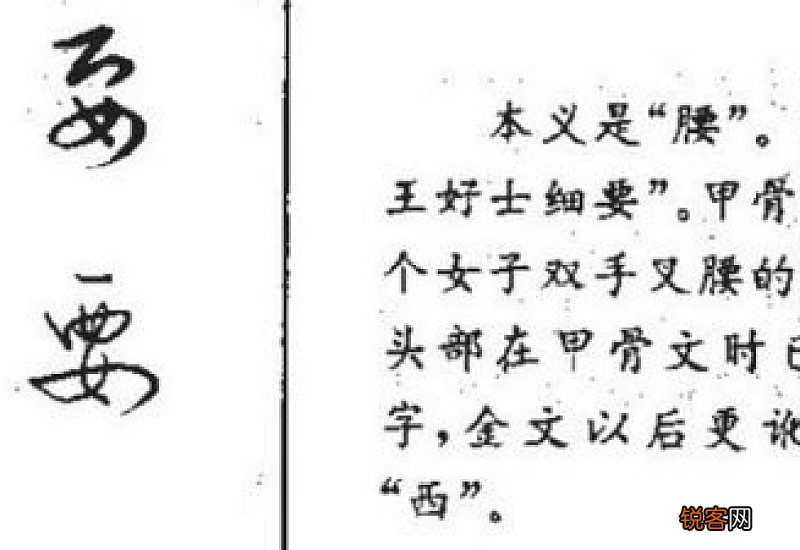 要
要
本义是“腰”。
王好士细要”。甲骨
个女子双手叉腰的
头部在甲骨文时
字，金文以后更讹
“西”。
锐客网